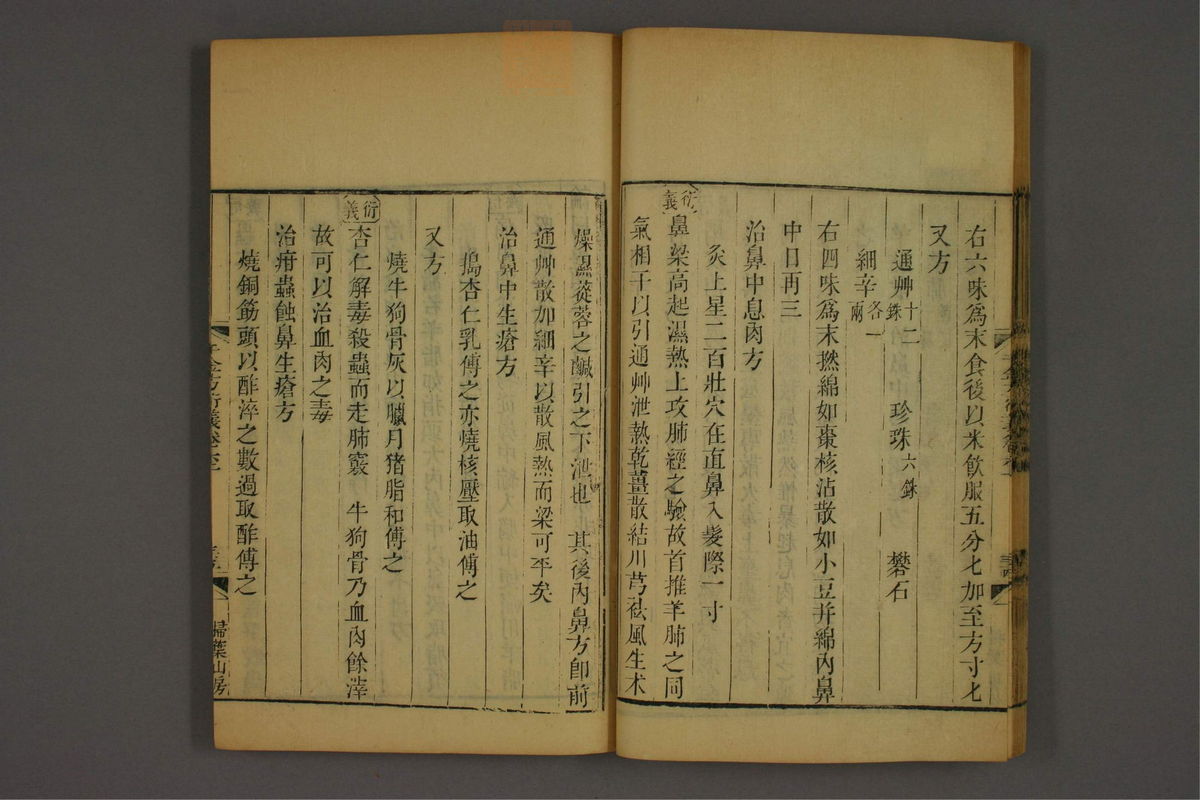 右六味爲末食後以米飲服五分匕加至方寸匕
又方
通艸十二銖　珍珠六銖　礬石
細辛各一兩
右四味爲末撚綿如棗核沾散如小豆并綿內鼻
中日再三
治鼻中息肉方
灸上星二百壯穴在直鼻入髮際一寸
衍義
鼻梁高起濕熱上攻肺經之驗故首推羊肺之同
氣相干以引通艸泄熱乾薑散結川芎祛風生术
燥濕蓯蓉之鹹引之下泄也　其後內鼻方卽前
通艸散加細辛以散風熱而梁可平矣
治鼻中生瘡方
搗杏仁乳傅之亦燒核壓取油傅之
又方
燒牛狗骨灰以臘月猪脂和傅之
衍義
杏仁解毒殺蟲而走肺竅　牛狗骨乃血肉餘滓
故可以治血肉之毒
治疳蟲蝕鼻生瘡方
燒銅筋頭以酢淬之數過取酢傅之
掃葉山房